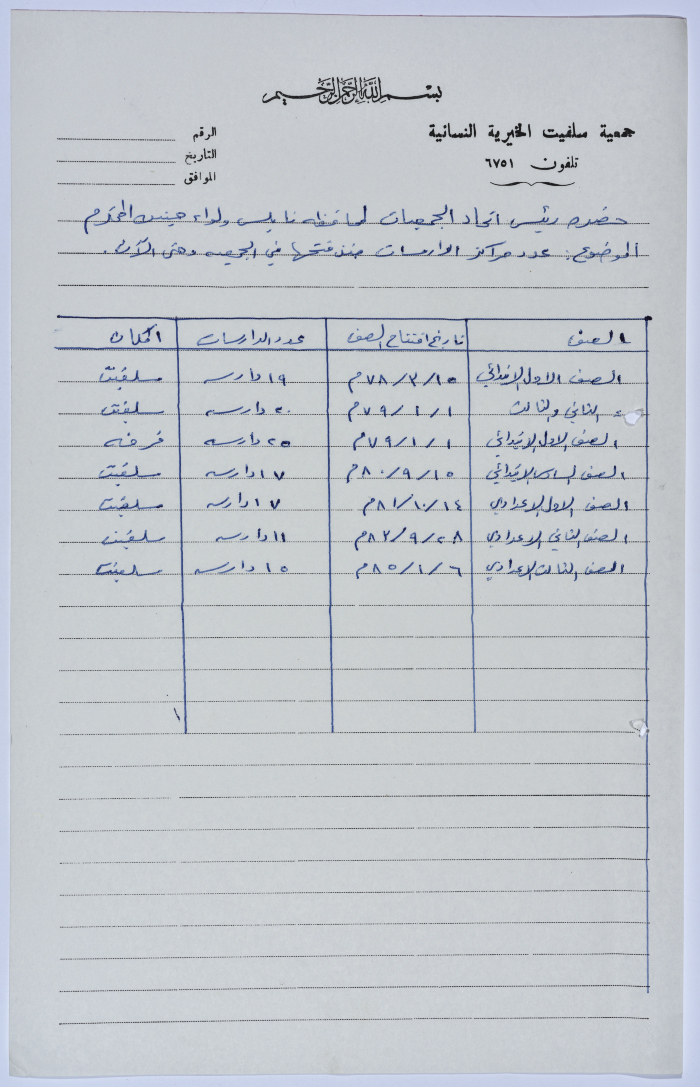 بسم الله الرحمن الرحيم
جمعية سلفيت الخيرية النسائية
تلفون ٦٧٥١
الرقم
التاريخ
الموافق
حضرة رئيس اتحاد الجمعيات لمحافظة نابلس ولواء جنين المحترم
الموضوع: عدد مراكز الدارسات منذ فتحها في الجمعيه وحتى الآن.
الصف تاريخ افتتاح الصف عدد الدارسات المكان
الصف الاول الابتدائي ٧٨/٣/١٥م ١٩ دارسه سلفيت
= الثاني والثالث ٧٩/١/١م ٢٠ دارسه سلفيت
الصف الاول الابتدائي ٧٩/١/١م ٢٥ دارسه فرخه
الصف السادس الابتدائي ٨٠/٩/١٥م ١٧ دارسه سلفيت
الصف الاول الاعدادي ٨١/١٠/١٤م ١٧ دارسه سلفيت
الصف الثاني الاعدادي ٨٣/٩/٢٨م ١١ دارسه سلفيت
الصف الثالث الاعدادي ٨٥/١/٦م ١٥ دارسه سلفيت